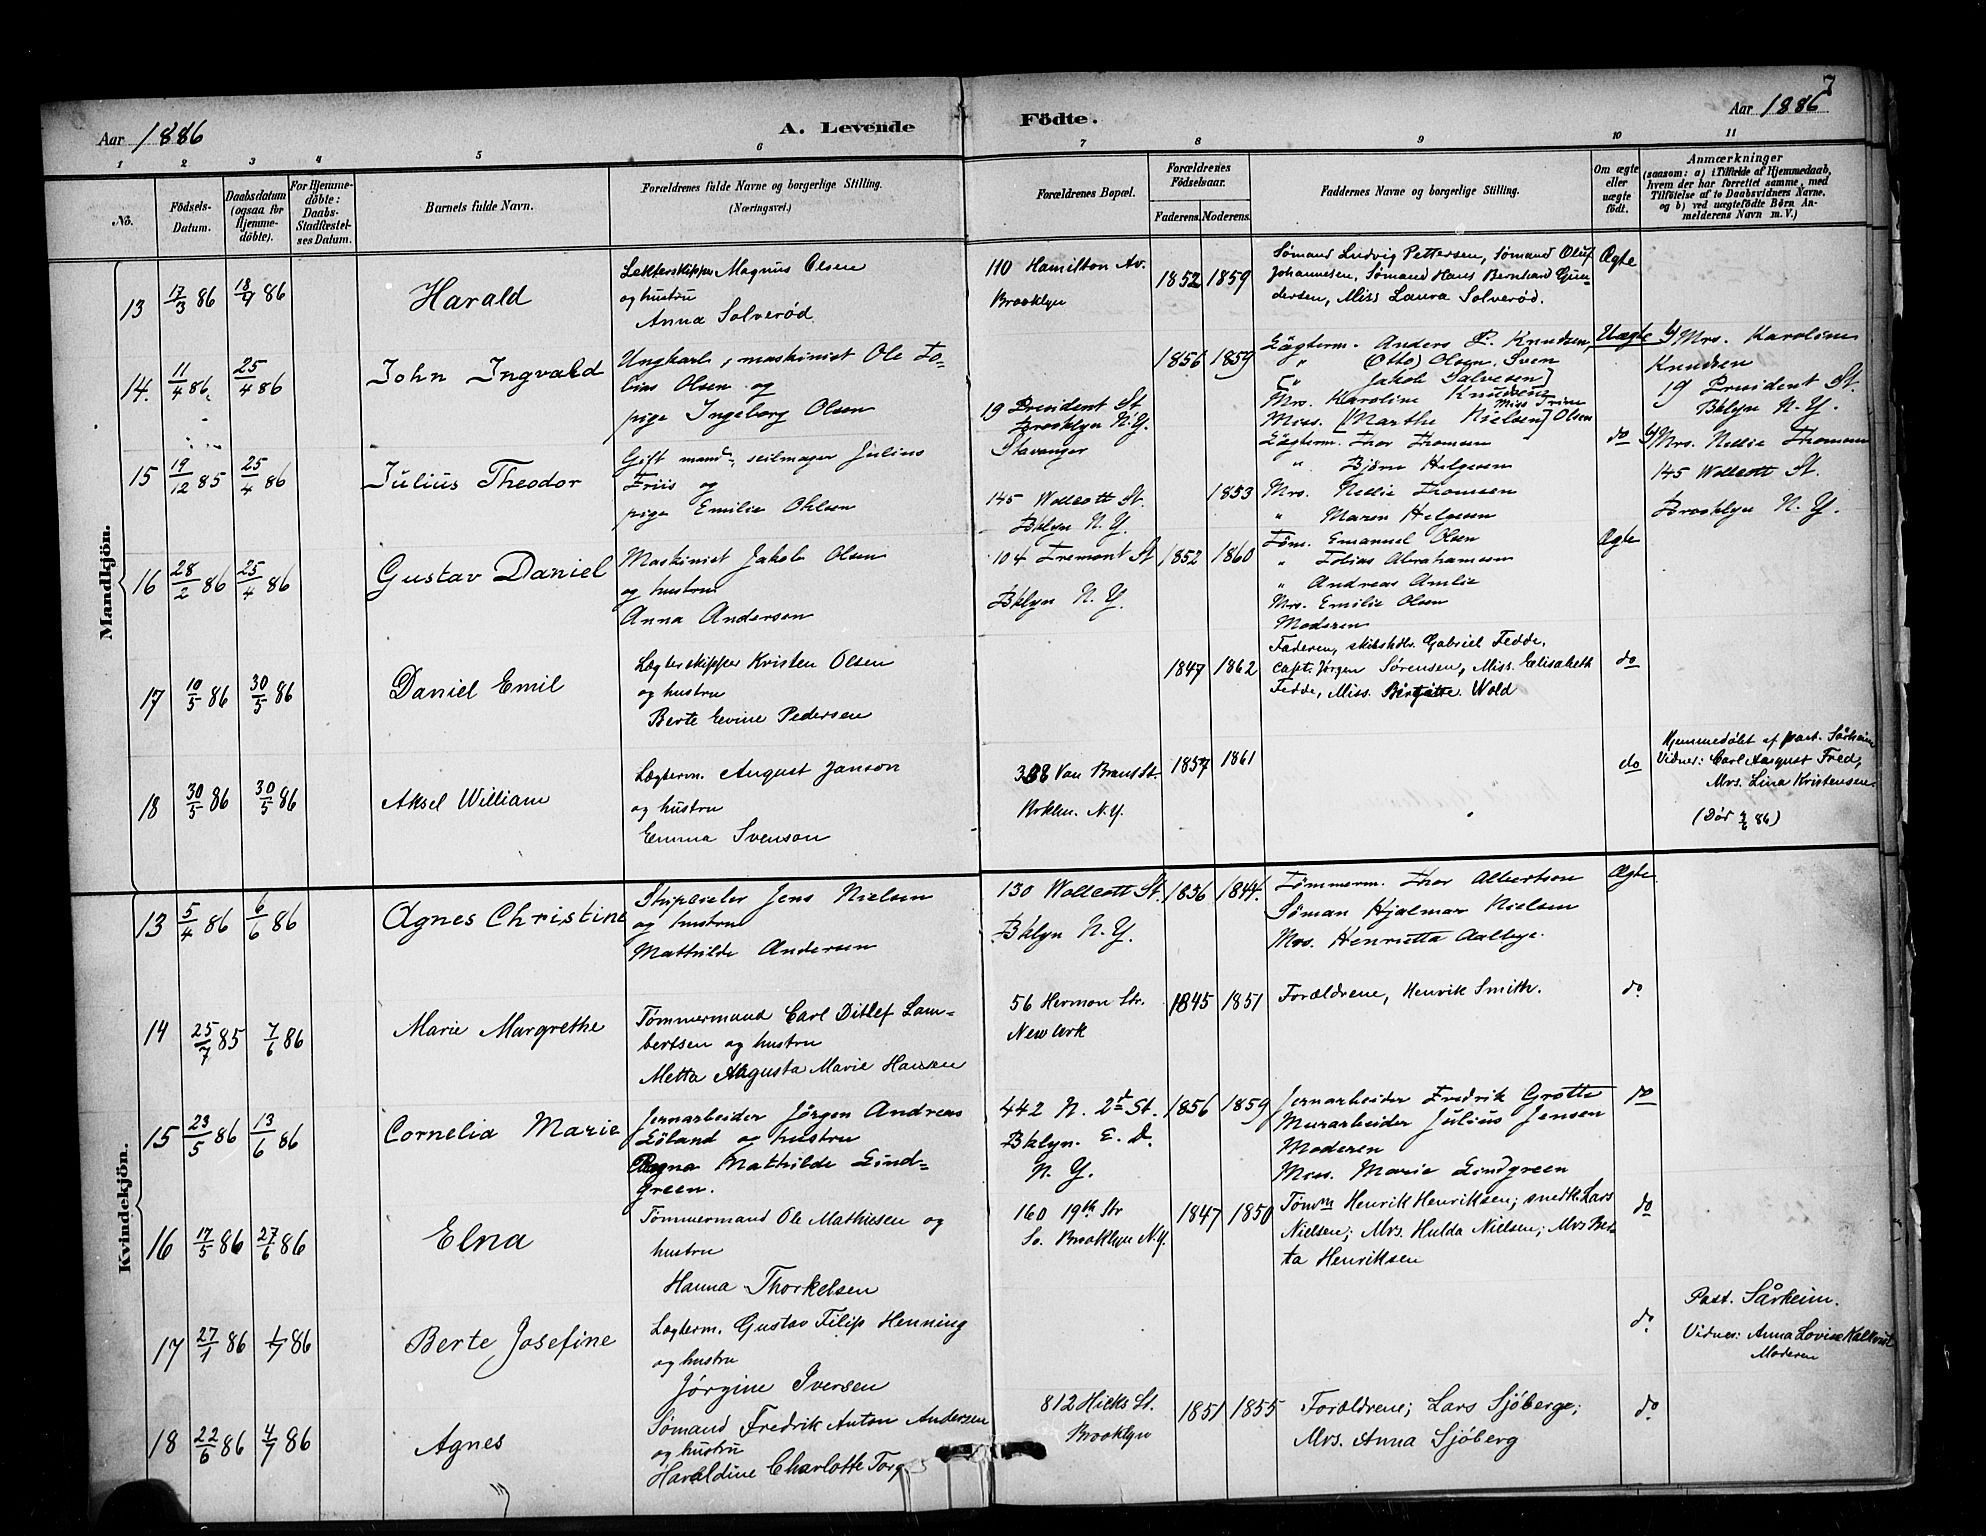 7
Aar 1886
A. Levende
Födte.
Aar 1886
1 2 3 4 5 6 7 8 9 10 11
Nö.
Födsels-Datum.
Daabsdatum (ogsaa for Hjemme-döbte).
For Hjemme-döbte: Daabs-Stadfæstel-ses Datum.
Barnets fulde Navn.
Forældrenes fulde Navne og borgerlige Stilling.
(Næringsvei.)
Forældrenes Bopæl.
Forældrenes Födselsaar.
Faderens. Moderens.
Faddernes Navne og borgerlige Stilling.
Om ægte eller uægte födt.
Anmærkninger
(saasom: a) i Tilfælde af Hjemmedaab,
hvem der har forrettet samme, med
Tilföielse af to Daabsvidners Navne,
og b) ved uægtefödte Börn An-
melderens Navn m. V.)
Mandkjön.
13 17/3 86 18/4 86
Harald
Lekterskipper Magnus Olsen
og hustru
Anna Solverød
110 Hamilton Av.
Brooklyn
1852 1859
Sømand Ludvig Pettersen, Sømand Oluf
Johannesen, Sømand Hans Bernhard Gun-
dersen, Miss Laura Solverød.
Ægte
14. 11/4 86. 25/4 86
John Ingvald
Ungkarl, maskinist Ole To-
bias Olsen og
pige Ingeborg Olsen
19 President St
Brooklyn N.Y.
Stavanger
1856 1859
Lægterm. Anders P. Knudsen,
" (Otto) Olsen. Sven
" Jakob Salvesen
Mrs. Karoline Knudsen
Miss Trine
Miss. [Marthe Nielsen] Olsen
Uægte
b/ Mrs. Karoline
Knudsen
19 President St.
Bklyn N.Y.
15 19/12 85 25/4 86
Julius Theodor
Gift mand, seilmager Julius
Friis og
pige Emilie Ohlsen
145 Wollcott St.
Bklyn N.Y.
1853
Lægterm. Thor Thomsen
" Bjørn Helgesen
Mrs. Nellie Thomsen
" Maren Helgesen
do
b/ Mrs. Nellie Thomsen
145 Wollcott St.
Brooklyn N.Y.
16 28/2 86 25/4 86
Gustav Daniel
Maskinist Jakob Olsen
og hustru
Anna Andersen
104 Tremont St
Bklyn N.Y.
1852 1860
Tøm. Emanuel Olsen
" Tobias Abrahamsen
" Andreas Amlie
Mrs. Emilie Olsen
Moderen
Ægte
17 10/5 86 30/5 86
Daniel Emil
Lægterskipper Kristen Olsen
og hustru
Berte Evine Pedersen
1847 1862
Faderen, skibshdlr. Gabriel Fedde,
Capt. Jørgen Sørensen, Miss. Elisabeth
Fedde, Miss. Birgitte Wold
do
18 30/5 86 30/5 86
Aksel William
Lægterm. August Janson
og hustru
Emma Svenson
388 Van Brunt St.
Brklyn. N.Y.
1857 1861
do
Hjemmedøbt af past. Sårheim
Vidner: Carl August Fred,
Mrs. Lina Kristensen.
(Dør 2/6 86)
Kvindekjön.
13 5/4 86 6/6 86
Agnes Christine
Jens Nielsen
og hustru
Mathilde Andersen
130 Wollcott St.
Bklyn N.Y.
1836 1844.
Tømmerm. Thor Albertson
Søman Hjalmar Nielsen
Mrs. Henrietta Aalbye.
Ægte
14 25/7 85 7/6 86
Marie Margrethe
Tømmermand Carl Ditlef Lam-
bertsen og hustru
Metta Augusta Marie Hansen
56 Hermon Str.
Newark
1845 1851
Forældrene, Henrik Smith.
do.
15 23/5 86 13/6 86
Cornelia Marie
Jernarbeider Jørgen Andreas
Løland og hustru
Ragna Mathilde Lind-
green.
442 N. 2d St.
Bklyn. E. D.
N.Y.
1856 1859
Jernarbeider Fredrik Grotte
Murarbeider Julius Jensen
Moderen
Miss. Marie Lindgreen
do
16 17/5 86 27/6 86
Elna
Tømmermand Ole Mathisen og
hustru
Hanna Thorkelsen
160 19th Str
So. Brooklyn N.Y.
1847 1850
Tømm Henrik Henriksen; snedk. Lars
Nielsen; Mrs. Hulda Nielsen; Mrs Ber-
ta Henriksen
do
17 27/1 86 1/7 86
Berte Josefine
Lægterm. Gustav Filip Henning
og hustru
Jørgine Iversen
do
Past. Sårheim.
Vidner: Anna Lovise Kalkvist
Moderen
18 22/6 86 4/7 86
Agnes
Sømand Fredrik Anton Andersen
og hustru
Haraldine Charlotte
812 Hicks St.
Brooklyn
1851 1855
Forældrene; Lars Sjöberge;
Mrs. Anna Sjöberg
do